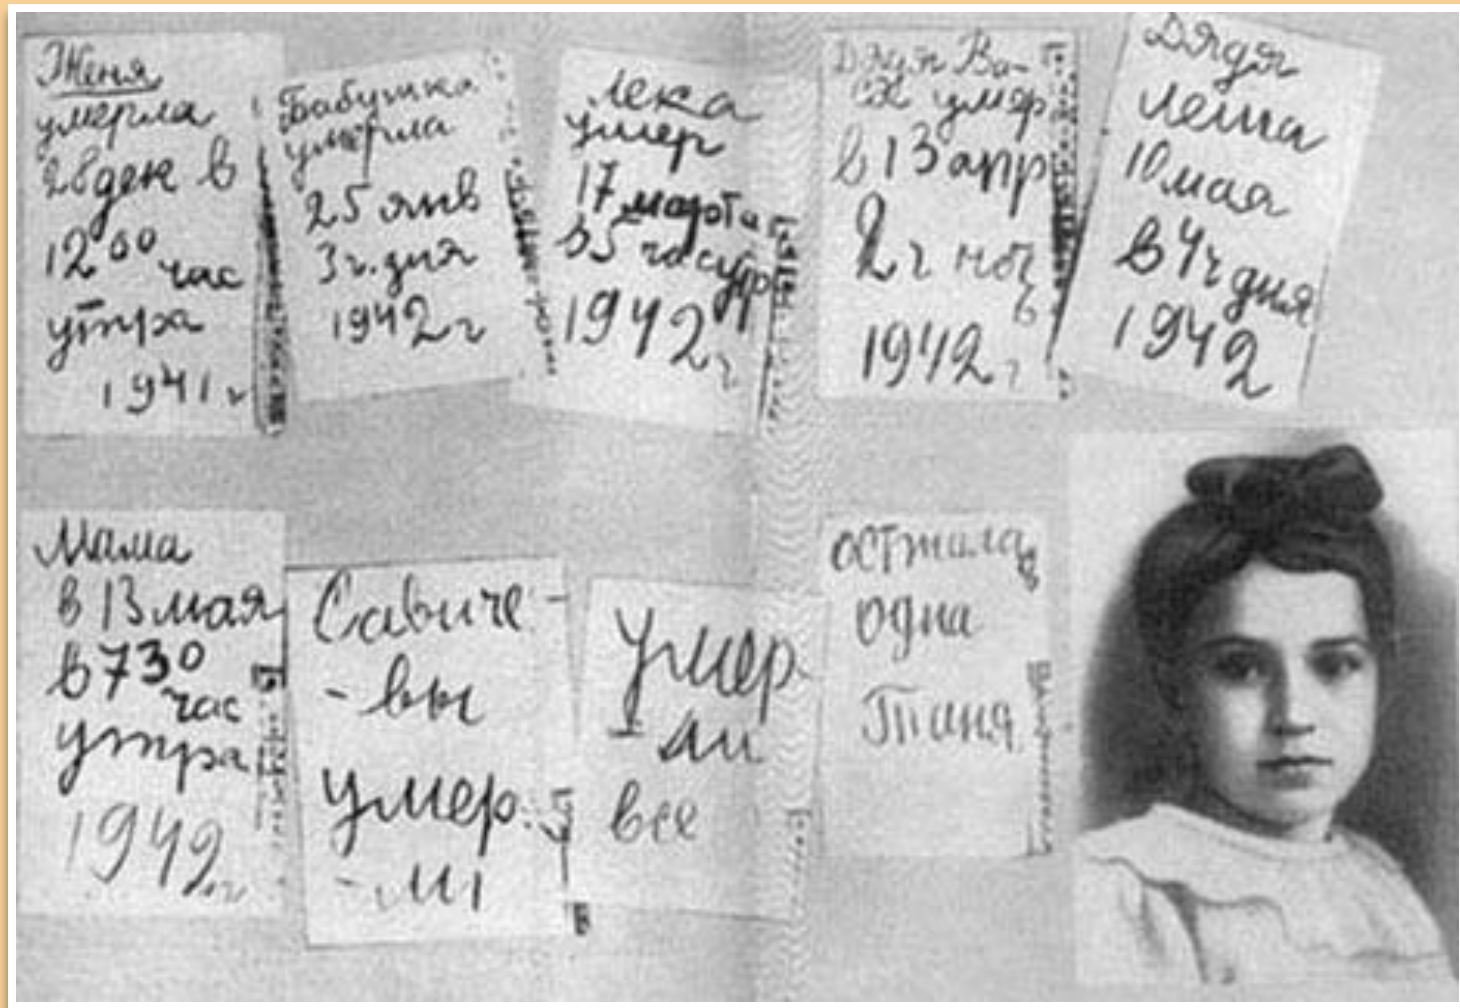 Женя
умерла
28 дек в
12⁰⁰ час
утра
1941 г
Бабушка
умерла
25 янв
3 ч. дня
1942 г
Лека
умер
17 марта
в 5 час утр
1942 г
Дядя Ва-
ся умер
в 13 апр
2 ч ноч
1942 г
Дядя
Леша
10 мая
в 4 ч дня
1942
Мама
в 13 мая
в 7 30
час
утра
1942 г
Савиче-
-вы
умер
-ли
Умер
-ли
все
одна
Таня